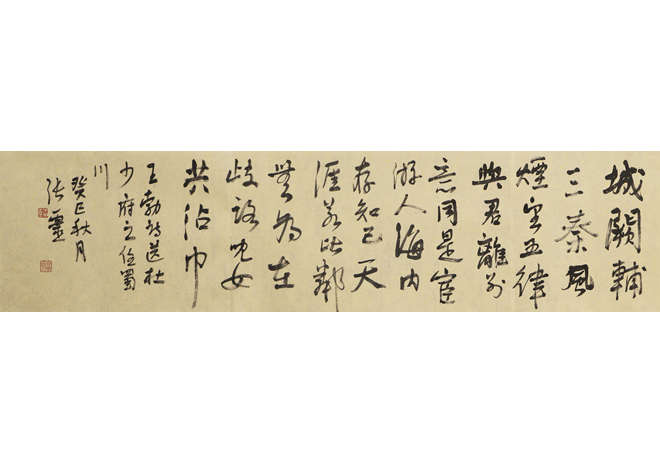 城闕輔
三秦風
煙望五津
與君離別
意同是宦
游人海内
存知己天
涯若比鄰
無為在
歧路兒女
共沾巾
王勃詩送杜
少府之任蜀
川
癸巳秋月
張靈